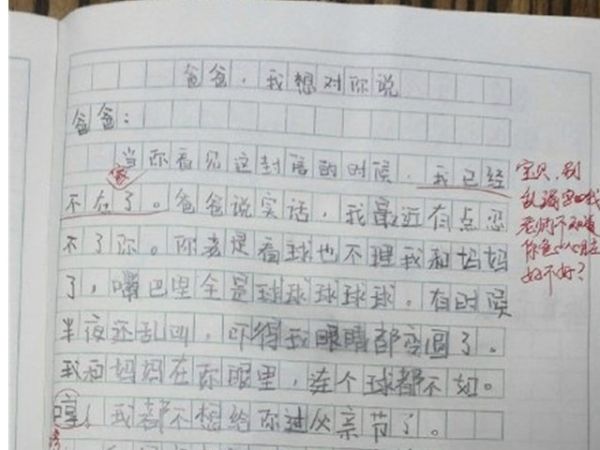 爸爸,我想对你说
爸爸:
当你看见这封信的时候,我已经
家
不在了。爸爸说实话,我最近有点忍
不了你。你老是看球也不理我和妈妈
了,嘴巴里全是球球球球球。有时候
半夜还乱叫,吓得我眼睛都变圆了。
我和妈妈在你眼里,连个球都不如。
哼!我都不想给你过父亲节了。
宝贝,别
乱说
老师不
你
好不好?